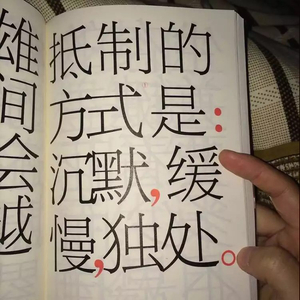 雄
间
会
抵制的
方式是:
沉默,缓
慢,独处。